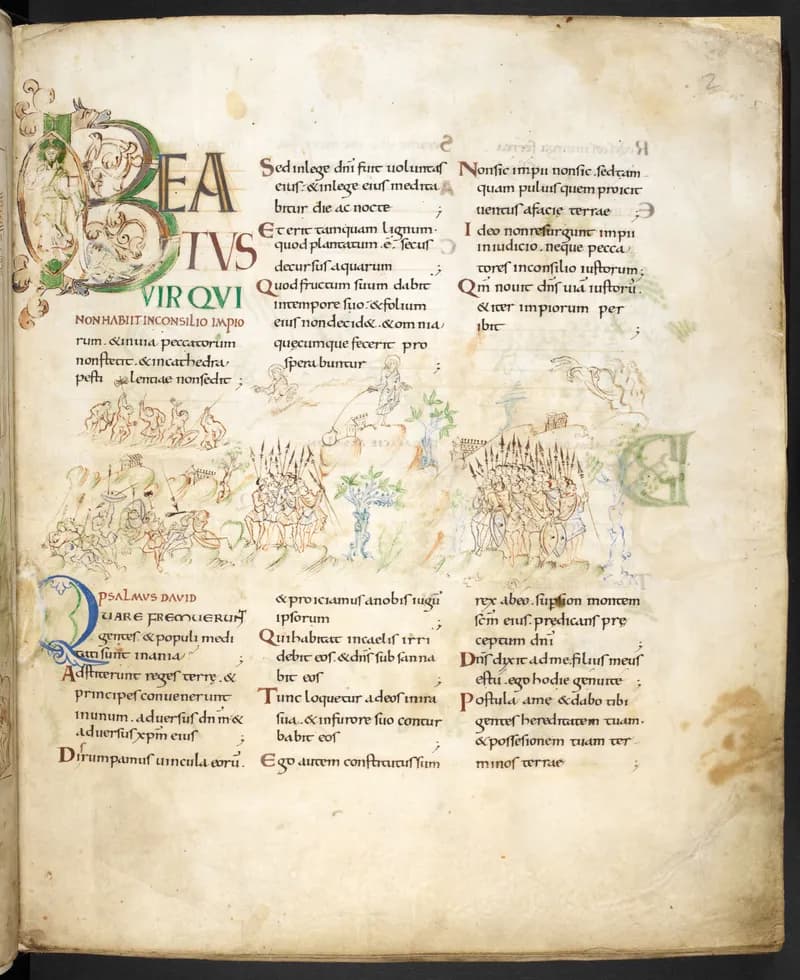 2
BEA
TVS
VIR QVI
NON HABIIT IN CONSILIO IMPIO
rum. & inuia peccatorum
non stetit. & in cathedra
pesti lentiae non sedit ;
Sed in lege dñi fuit uoluntas
eius. & in lege eius medita
bitur die ac nocte ;
Et erit tamquam lignum.
quod plantatum .ē. secus
decursus aquarum ;
Quod fructum suum dabit
in tempore suo. & folium
eius non decid&. & omnia
quecumque fecerit pro
sperabuntur ;
Non sic impii non sic. sed tam
quam puluis quem proicit
uentus a facie terrae ;
Ideo non resurgunt impii
in iudicio. neque pecca
tores in consilio iustorum ;
Qm̄ nouit dn̄s uiā iustorū.
& iter impiorum per
ibit ;
PSALMVS DAVID
QUARE FREMUERUNT
gentes & populi medi
tati sunt inania ;
Adstiterunt reges terrę. &
principes conuenerunt
in unum. aduersus dn̄m &
aduersus xpm̄ eius ;
Dirumpamus uincula eorū.
& proiciamus a nobis iugū
ipsorum ;
Qui habitat in caelis irri
debit eos. & dn̄s subsanna
bit eos ;
Tunc loquetur ad eos in ira
sua. & in furore suo contur
babit eos ;
Ego autem constitutus sum
rex ab eo. sup sion montem
scm̄ eius. predicans prę
ceptum dn̄i ;
Dn̄s dixit ad me. filius meus
es tu. ego hodie genui te ;
Postula a me & dabo tibi
gentes hereditatem tuam.
& possesionem tuam ter
minos terrae ;